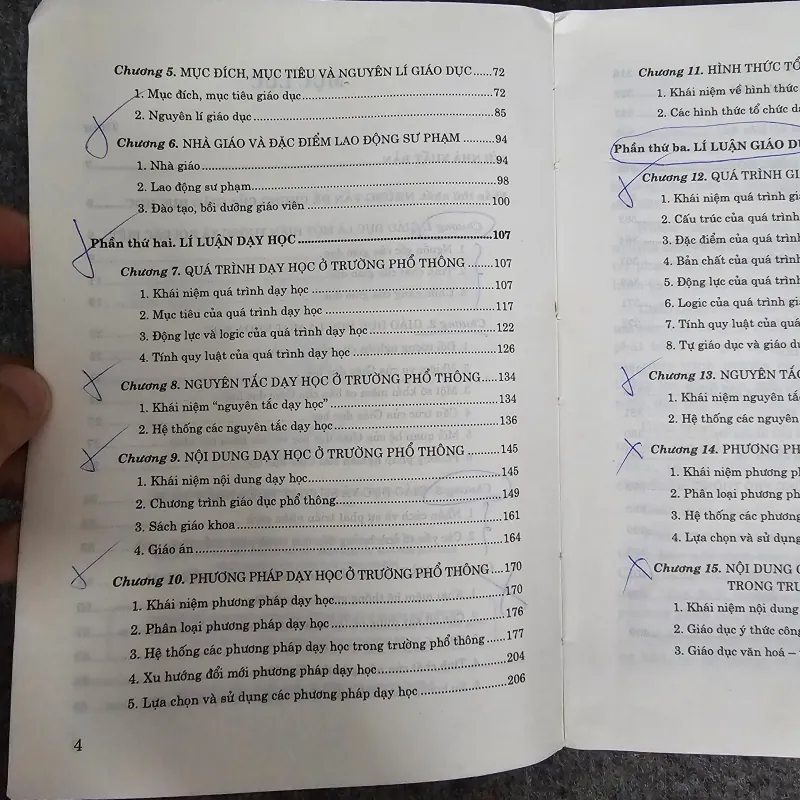 Chương 5. MỤC ĐÍCH, MỤC TIÊU VÀ NGUYÊN LÍ GIÁO DỤC......72
1. Mục đích, mục tiêu giáo dục......72
2. Nguyên lí giáo dục......85
Chương 6. NHÀ GIÁO VÀ ĐẶC ĐIỂM LAO ĐỘNG SƯ PHẠM......94
1. Nhà giáo......94
2. Lao động sư phạm......98
3. Đào tạo, bồi dưỡng giáo viên......100
Phần thứ hai. LÍ LUẬN DẠY HỌC......107
Chương 7. QUÁ TRÌNH DẠY HỌC Ở TRƯỜNG PHỔ THÔNG......107
1. Khái niệm quá trình dạy học......107
2. Mục tiêu của quá trình dạy học......117
3. Động lực và logic của quá trình dạy học......122
4. Tính quy luật của quá trình dạy học......126
Chương 8. NGUYÊN TẮC DẠY HỌC Ở TRƯỜNG PHỔ THÔNG......134
1. Khái niệm “nguyên tắc dạy học”......134
2. Hệ thống các nguyên tắc dạy học......136
Chương 9. NỘI DUNG DẠY HỌC Ở TRƯỜNG PHỔ THÔNG......145
1. Khái niệm nội dung dạy học......145
2. Chương trình giáo dục phổ thông......149
3. Sách giáo khoa......161
4. Giáo án......164
Chương 10. PHƯƠNG PHÁP DẠY HỌC Ở TRƯỜNG PHỔ THÔNG....170
1. Khái niệm phương pháp dạy học......170
2. Phân loại phương pháp dạy học......176
3. Hệ thống các phương pháp dạy học trong trường phổ thông......177
4. Xu hướng đổi mới phương pháp dạy học......204
5. Lựa chọn và sử dụng các phương pháp dạy học......206
4
Chương 11. HÌNH THỨC
1. Khái niệm về hình thức
2. Các hình thức tổ chức
Phần thứ ba. LÍ LUẬN GIÁO
Chương 12. QUÁ TRÌNH
1. Khái niệm quá trình
2. Cấu trúc của quá trình
3. Đặc điểm của quá trình
4. Bản chất của quá trình
5. Động lực của quá trình
6. Logic của quá trình
7. Tính quy luật của quá
8. Tự giáo dục và giáo
Chương 13. NGUYÊN
1. Khái niệm nguyên
2. Hệ thống các nguyên
Chương 14. PHƯƠNG
1. Khái niệm phương
2. Phân loại phương
3. Hệ thống các phương
4. Lựa chọn và sử dụng
Chương 15. NỘI DUNG
TRONG
1. Khái niệm nội dung
2. Giáo dục ý thức công
3. Giáo dục văn hoá –